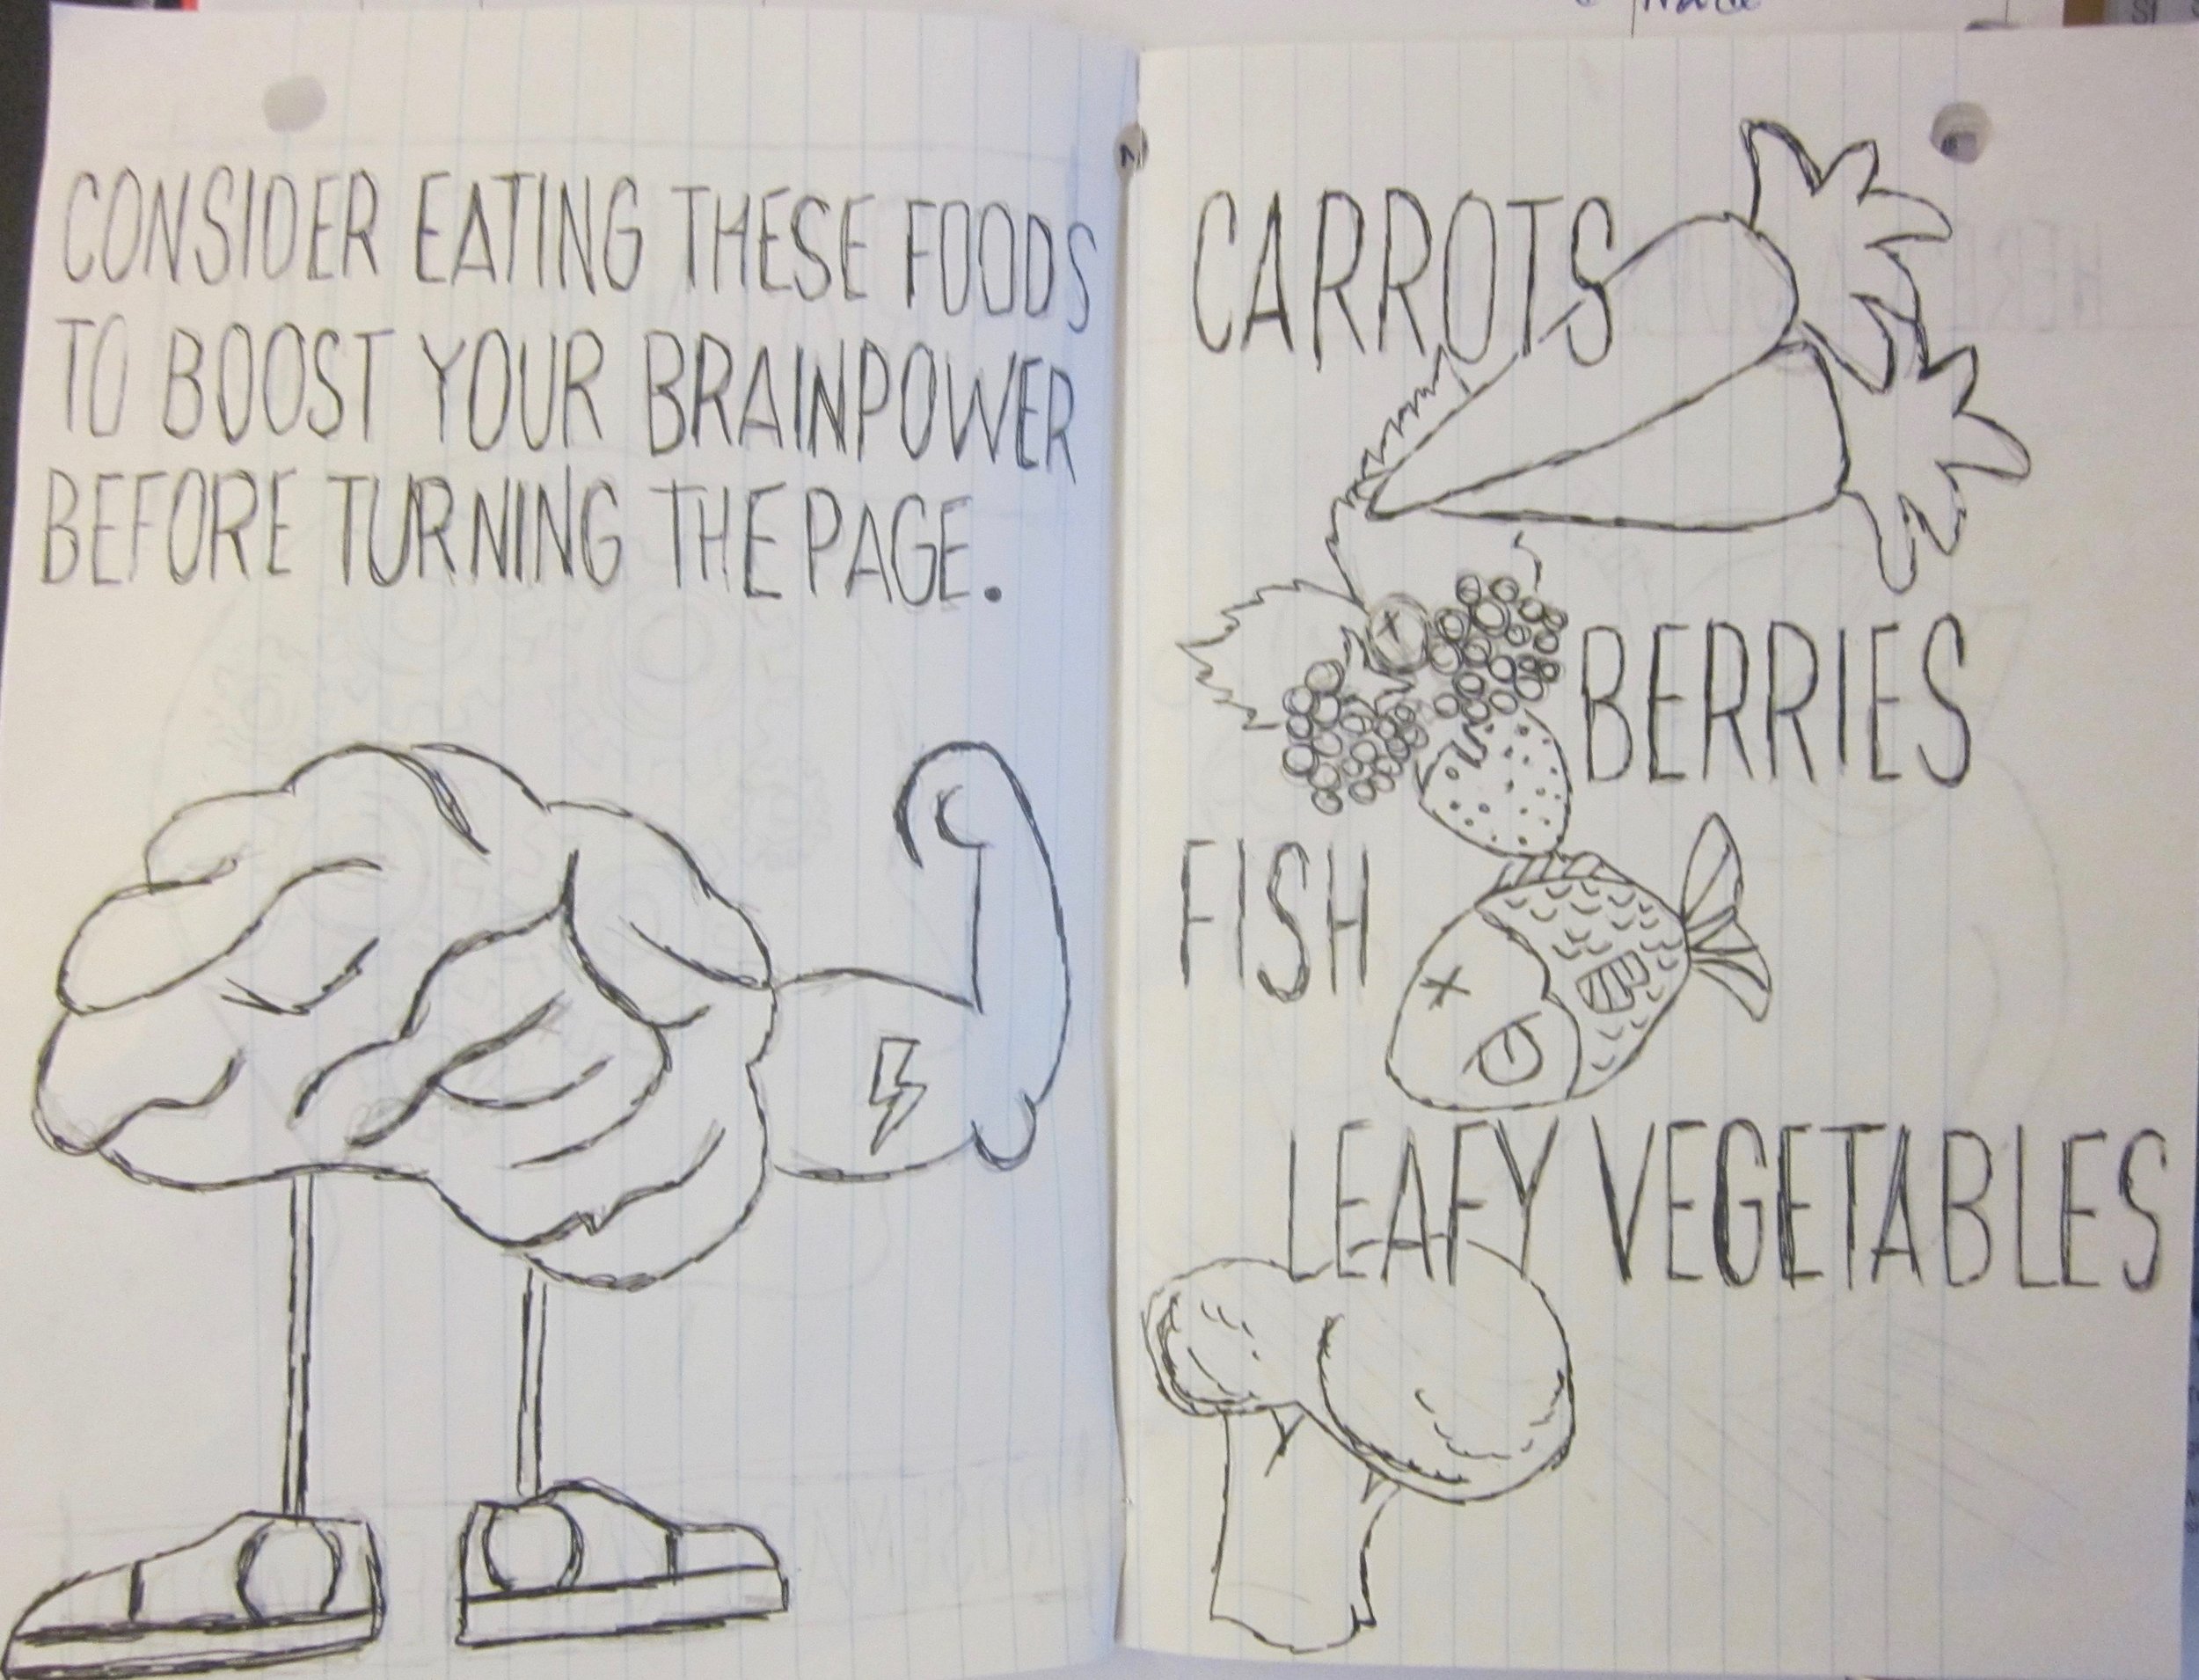 CONSIDER EATING THESE FOODS
TO BOOST YOUR BRAINPOWER
BEFORE TURNING THE PAGE.
CARROTS
BERRIES
FISH
LEAFY VEGETABLES